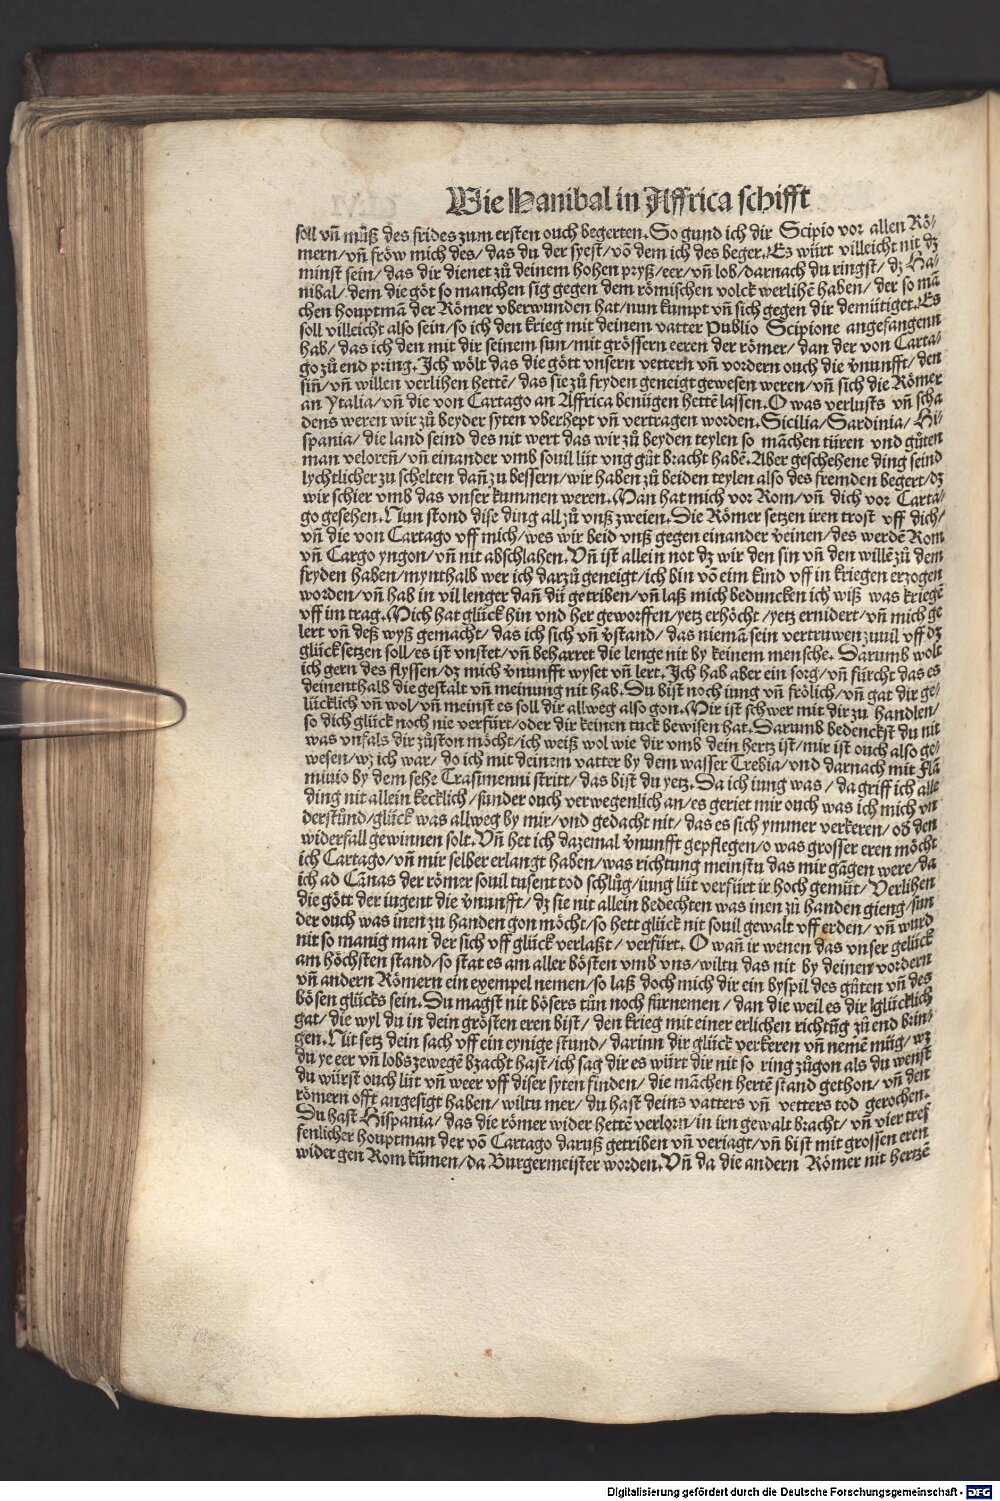 Wie Hanibal in Affrica schifft
soll vñ můß des frides zum ersten ouch begerten. So gund ich dir Scipio vor allen Rö⸗
mern/ vñ fröw mich des/ das du der syest/ võ dem ich des beger. Es würt villeicht nit dz
minst sein/ das dir dienet zů deinem hohen pryß/ eer/ vñ lob/ darnach du ringst/ dz Ha⸗
nibal/ dem die göt so manchen sig gegen dem römischen volck werlihẽ haben/ der so mã
chen houptmã der Römer vberwunden hat/ nun kumpt vñ sich gegen dir demütiget. Es
soll villeicht also sein/ so ich den krieg mit deinem vatter Publio Scipione angefangenn
hab/ das ich den mit dir seinem sun/ mit grössern eeren der römer/ dan der von Carta⸗
go zů end pring. Ich wölt das die gött vnsern vettern vñ vordern ouch die v̈nunfft/ den
siñ/ vñ willen verlihen hettẽ/ das sie zů fryden geneigt gewesen weren/ vñ sich die Römer
an Ytalia/ vñ die von Cartago an Affrica benügen hettẽ lassen. O was verlusts vñ scha
dens weren wir zů beyder syten vberhept vñ vertragen worden. Sicilia/ Sardinia/ Hi⸗
spania/ die land seind des nit wert das wir zů beyden teylen so mãchen türen vnd gůten
man veloreñ/ vñ einander vmb souil lüt vng gůt bracht habẽ. Aber geschehene ding seind
lychtlicher zu schelten dañ zu bessern/ wir haben zů beiden teylen also des fremden begert/ dz
wir schier vmb das vnser kummen weren. Man hat mich vor Rom/ vñ dich vor Carta⸗
go gesehen. Nun stond dise ding all zů vnß zweien. Die Römer setzen iren trost vff dich/
vñ die von Cartago vff mich/ wes wir beid vnß gegen einander veinen/ des werdẽ Rom
vñ Cargo yngon/ vñ nit abschlahen. Vñ ist allein not dz wir den sin vñ den willẽ zů dem
fryden haben/ mynthalb wer ich darzů geneigt/ ich bin võ eim kind vff in kriegen erzogen
worden/ vñ hab in vil lenger dañ dü getriben/ vñ laß mich beduncken ich wiß was kriegẽ
vff im trag. Mich hat glück hin vnd her geworffen/ yetz erhöcht/ yetz ernidert/ vñ mich ge
lert vñ deß wyß gemacht/ das ich sich vñ v̈stand/ das niemã sein vertruwen zuuil vff dz
glück setzen soll/ es ist vnstet/ vñ beharret die lenge nit by keinem mensche. Darumb wolt
ich gern des flyssen/ dz mich v̈nunfft wyset vñ lert. Ich hab aber ein sorg/ vñ fürcht das es
deinenthalb die gestalt vñ meinung nit hab. Du bist noch iung vñ frölich/ vñ gat dir ge⸗
lücklich vñ wol/ vñ meinst es soll dir allweg also gon. Mir ist schwer mit dir zu handlen/
so dich glück noch nie verfürt/ oder dir keinen tuck bewisen hat. Darumb bedenckst du nit
was vnfals dir zůston möcht/ ich weiß wol wie dir vmb dein hertz ist/ mir ist ouch also ge⸗
wesen/ wz ich war/ do ich mit deinem vatter by dem wasser Trebia/ vnd darnach mit Flã
minio by dem sehe Trasimenni stritt/ das bist du yetz. Da ich iung was/ da griff ich alle
ding nit allein kecklich/ sunder ouch verwegenlich an/ es geriet mir ouch was ich mich vn
derstůnd/ glück was allweg by mir/ vnd gedacht nit/ das es sich ymmer verkeren/ od̕ den
widerfall gewinnen solt. Vñ het ich dazemal v̈nunfft gepflegen/ o was grosser eren möcht
ich Cartago/ vñ mir selber erlangt haben/ was richtung meinstu das mir gãgen were/ da
ich ad Cañas der römer souil tusent tod schlůg/ iung lüt verfürt ir hoch gemüt/ Verlihen
die gött der iugent die v̈nunfft/ dz sie nit allein bedechten was inen zů handen gieng/ sun
der ouch was inen zu handen gon möcht/ so hett glück nit souil gewalt vff erden/ vñ wurd
nit so manig man der sich vff glück verlaßt/ verfürt. O wañ ir wenen das vnser gelück
am höchsten stand/ so stat es am aller bösten vmb vns/ wiltu das nit by deinen vordern
vñ andern Römern ein exempel nemen/ so laß doch mich dir ein byspil des gůten vñ des
bösen glücks sein. Du magst nit bösers tůn noch fürnemen/ dan die weil es dir iglücklich
gat/ die wyl du in dein grösten eren bist/ den krieg mit einer erlichen richtũg zů end brin⸗
gen. Nit setz dein sach vff ein eynige stund/ darinn dir glück verkeren vñ nemẽ müg/ wz
du ye eer vñ lobs zewegẽ bracht hast/ ich sag dir es würt dir nit so ring zůgon als du wenst
du würst ouch lüt vñ weer vff diser syten finden/ die mãchen hertẽ stand gethon/ vñ den
römern offt angesigt haben/ wiltu mer/ du hast deins vatters vñ vetters tod gerochen.
Du hast Hispania/ das die römer wider hettẽ verlorn/ in irn gewalt bracht/ vñ vier tref
fenlicher houptman der võ Cartago daruß getriben vñ veriagt/ vñ bist mit grossen eren
wider gen Rom kũmen/ da Burgermeister worden. Vñ da die andern Römer nit hertzẽ
Digitalisierung gefördert durch die Deutsche Forschungsgemeinschaft - DFG